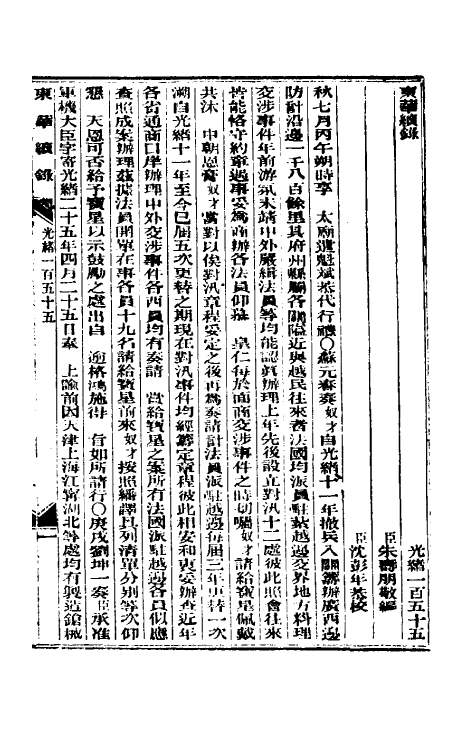 東華續錄
光緒一百五十五
臣朱壽朋敬編
臣沈彭年恭校
秋七月丙午朔時享　太廟遣魁斌恭代行禮○蘇元春奏奴才自光緒十一年撤兵入關籌辦廣西邊
防計沿邊一千八百餘里其府州縣屬各關隘近與越民往來者法國均派員駐紮越邊交界地方料理
交涉事件年前游氛未靖中外嚴緝法員等均能認眞辦理上年先後設立對汛十二處彼此照會往來
皆能恪守約章遇事妥爲商辦各法員仰慕　皇仁每於面商交涉事件之時切囑奴才請給寶星佩戴
共沐　中朝恩奴才當對以俟對汛章程妥定之後再爲奏請計法員派駐越邊每屆三年更替一次
溯自光緒十一年至今已屆五次更替之期現在對汛事件均經籌定章程彼此相安和衷妥辦查近年
各省通商口岸辦理中外交涉事件各西員均有奏請　賞給寶星之案所有法國派駐越邊各員似應
查照成案辦理茲據法員開單在事各員十九名請給寶星前來奴才按照繙譯具列清單分別等次仰
懇　天恩可否給予寶星以示鼓勵之處出自　逾格鴻施得　旨如所請行○庚戌劉坤一奏臣承准
軍機大臣字寄光緒二十五年四月二十五日奉　上諭前因天津上海江寧湖北等處均有製造鎗械
東華續錄　光緒一百五十五　一